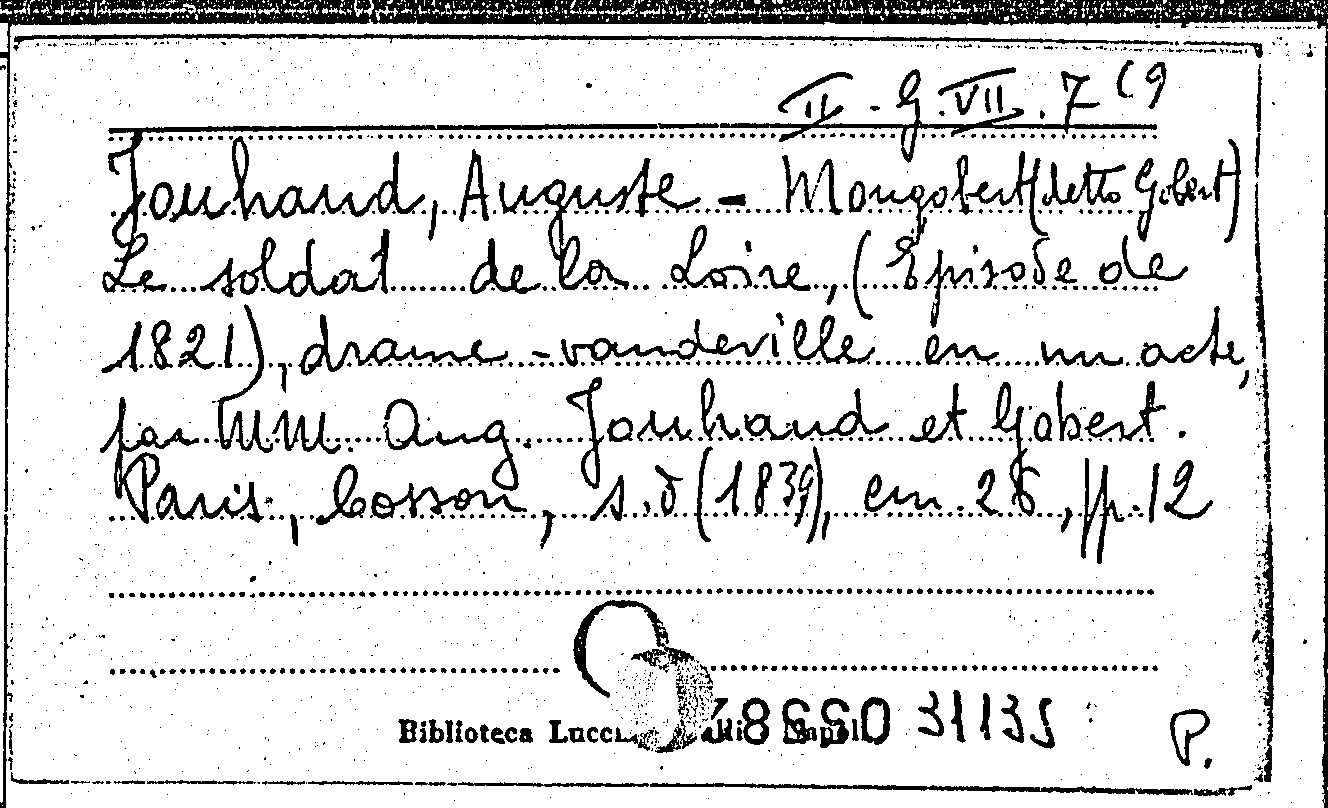 II. G. VII. 7 (9
Jouhaud, Auguste - Mongobert (detto Gobert)
Le soldat de la Loire, (Episode de
1821), drame-vaudeville en un acte,
par MM. Aug. Jouhaud et Gobert.
Paris, Cosson, s.d (1839), cm. 26, pp. 12
Biblioteca 31135
P.